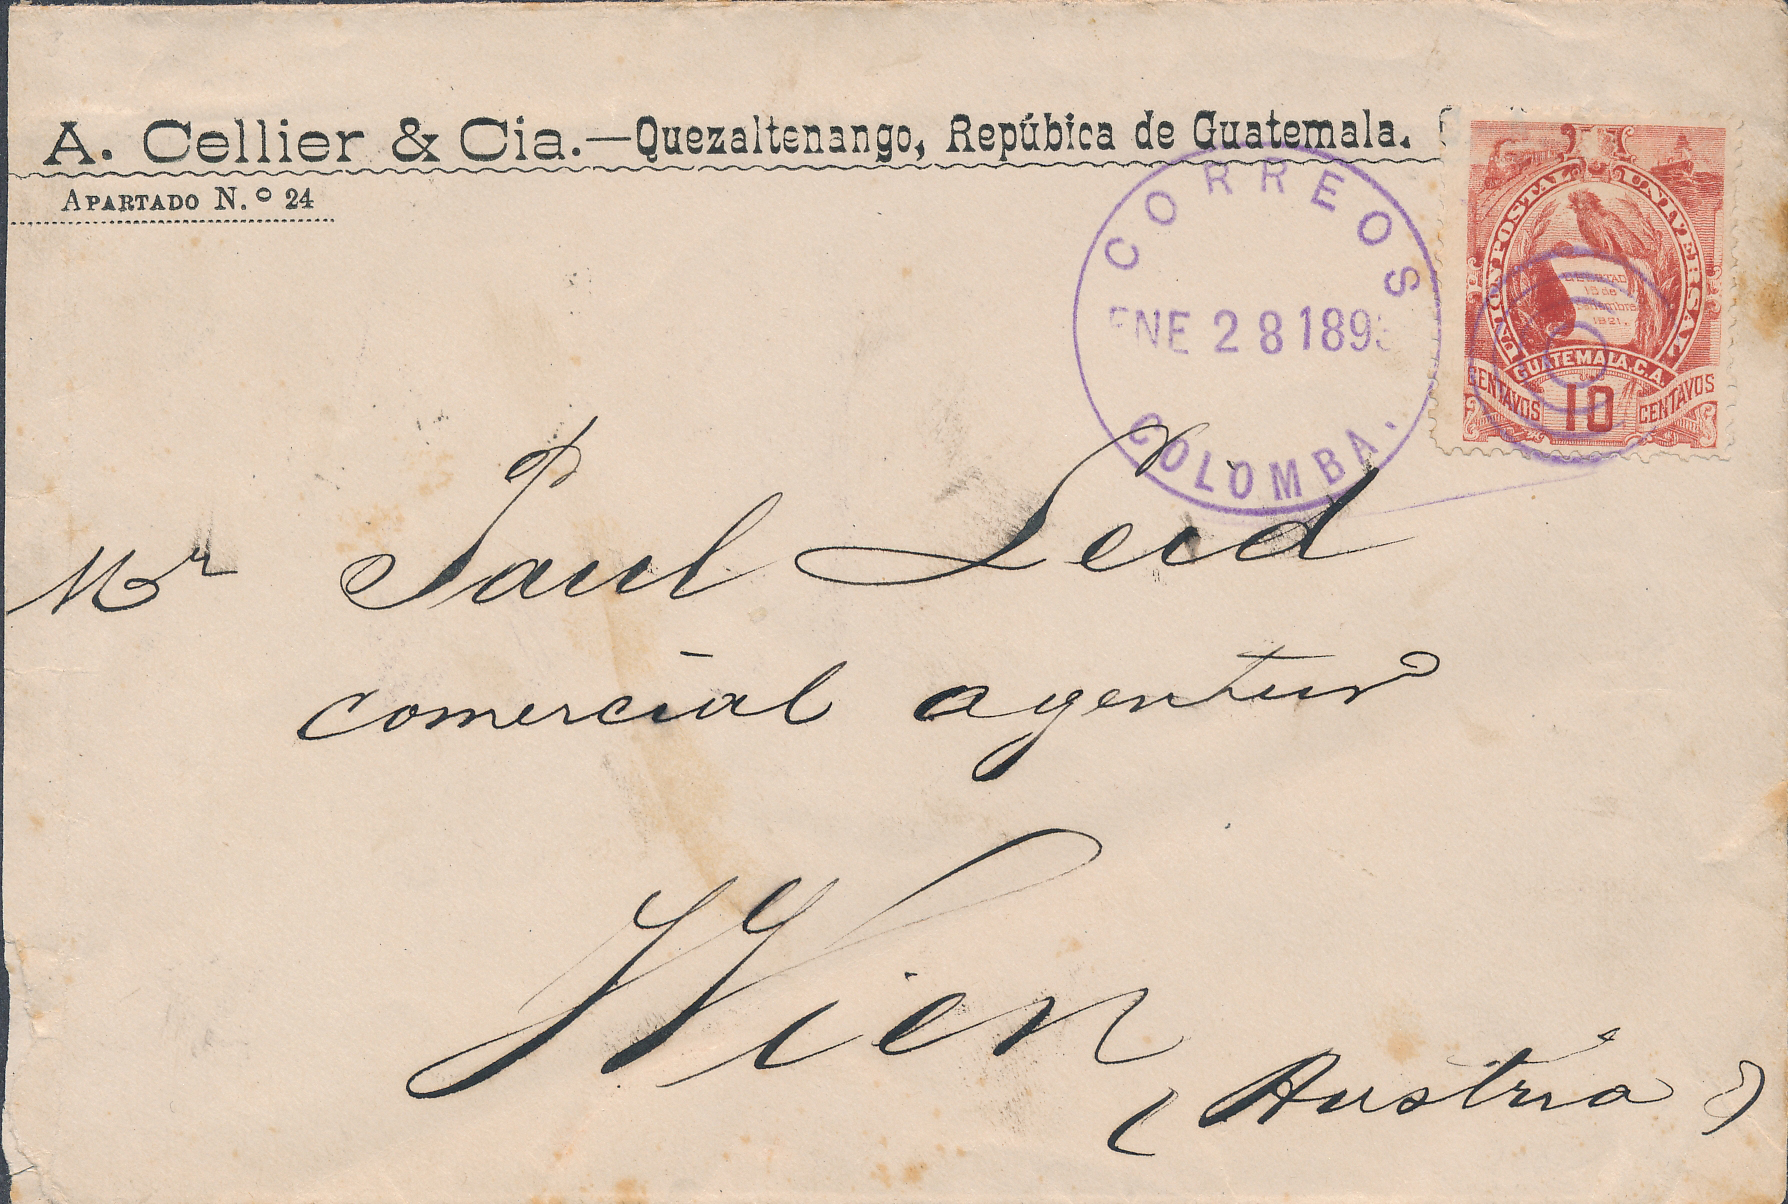 A. Cellier & Cia.—Quezaltenango, Repúbica de Guatemala.
APARTADO N.º 24
CORREOS
ENE 28 189
COLOMBA.
UNION POSTAL UNIVERSAL
LIBERTAD
15 de
Setiembre
1821
GUATEMALA. C.A.
CENTAVOS 10 CENTAVOS
Mr Paul Leid
comercial agentur
Wien
(Austria)